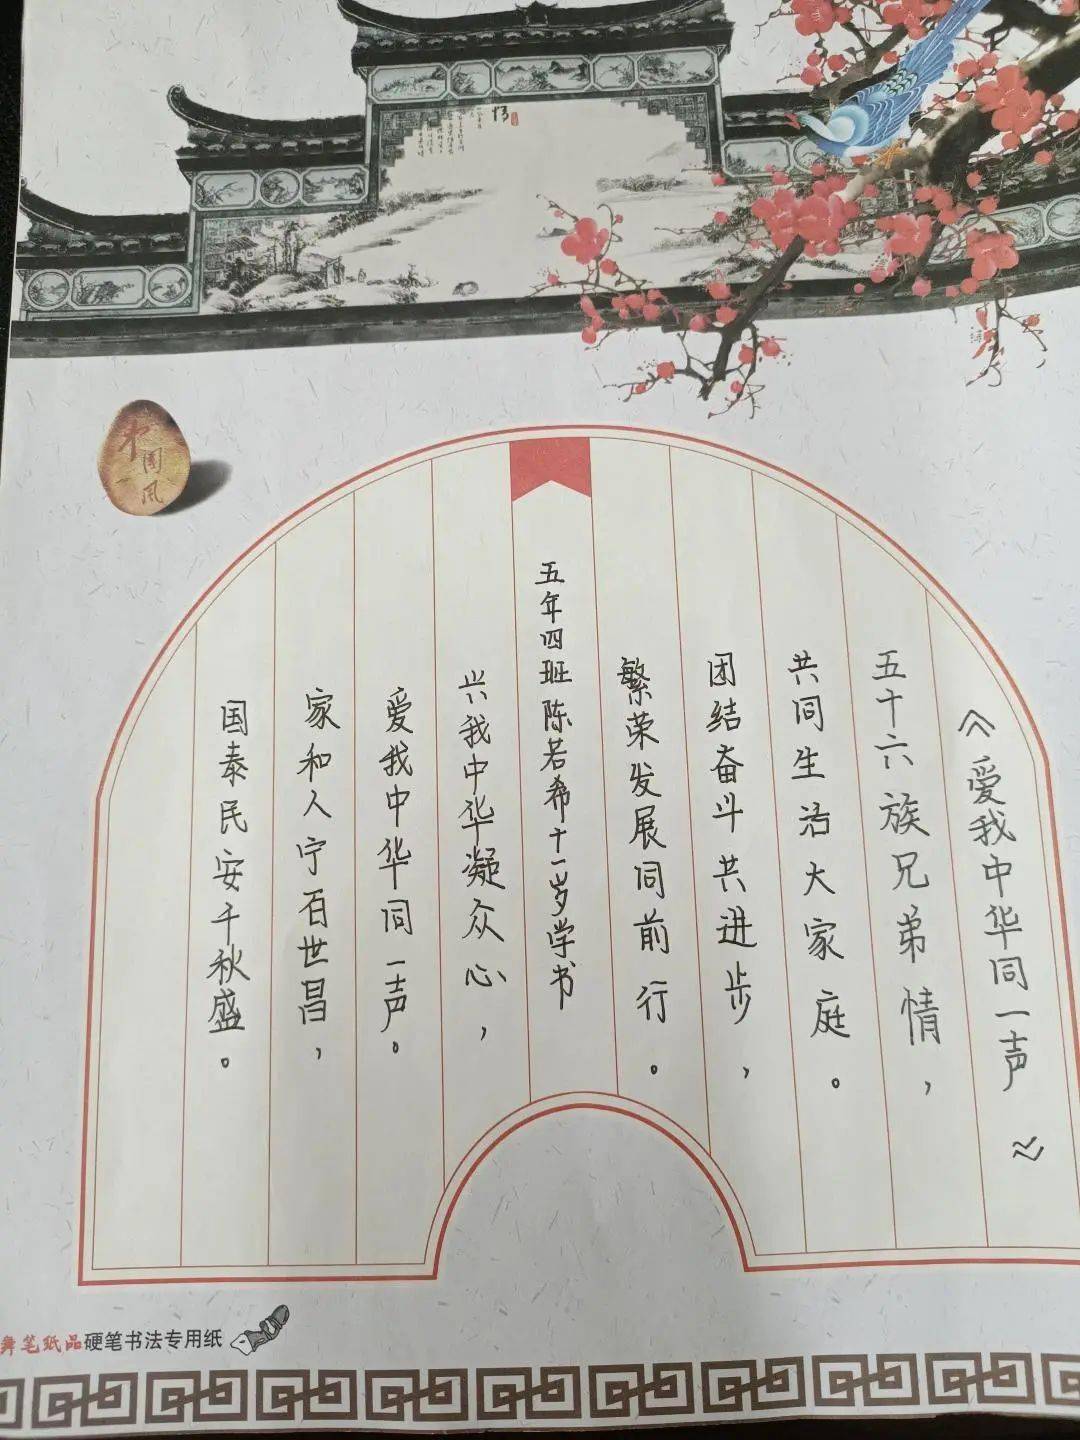 悟
中国风
《爱我中华同一声》
五十六族兄弟情，
共同生活大家庭。
团结奋斗共进步，
繁荣发展同前行。
五年四班 陈若希十一岁学书
兴我中华凝众心，
爱我中华同一声。
家和人宁百世昌，
国泰民安千秋盛。
舞笔纸品硬笔书法专用纸